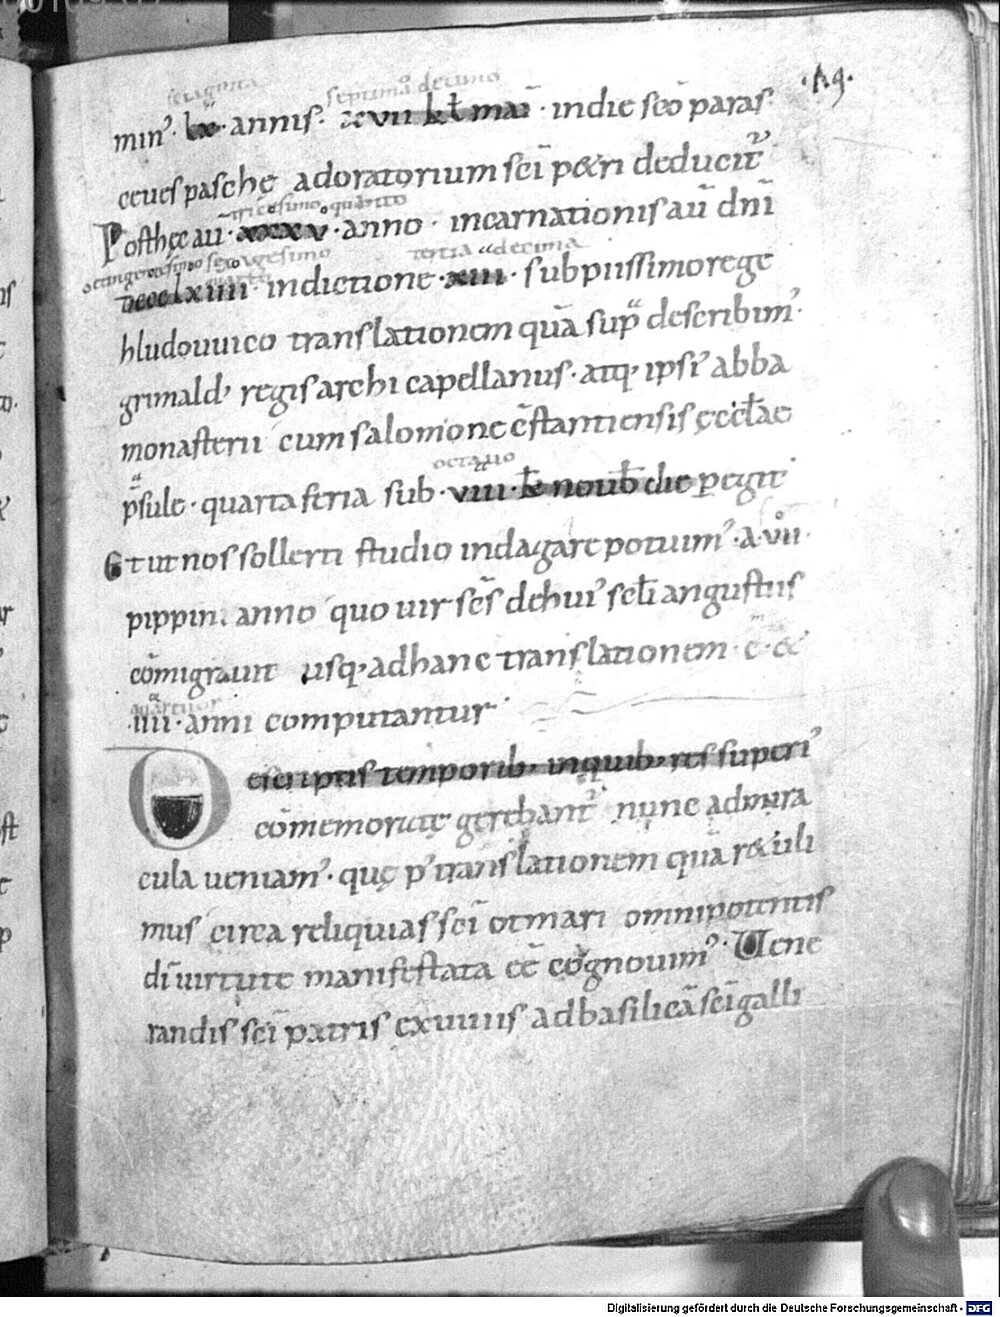 ·A9·
sexaginta septimo decimo
min᾽· lxͣ· annis· xvii kƚ mai᷑ · in die sc̄o paras
ceues paschę ad oratorium sc̄i petri deducit᷑
tricesimo quarto
Post hęc aū· xxxxv · anno · incarnationis aū dn̄i
octingentesimo sexagesimo tertia decima
dccclxiiii · indictione · xiii · sub piissimo rege
hludouuico translationem quā sup̄ͣ describim᾽·
grimald᾽ regis archi capellanus · atq· ipsi᾽ abba
monasterii cum salomone c̄stantiensis ęccƚae
octauo
p̄sule · quarta feria sub · viii · kƚ noub̄ die pegit·
Et ut nos sollerti studio indagare potuim᾽ · a · vii ·
pippini anno quo uir sc̄s dehui᾽ scƚi angustiis
cōmigrauit usq· ad hanc translationem · c̄ · &
quattuor
· iiii · anni computantur
Descriptis temporib· in quib· res superi᾽
cōmemoratę gerebant᷑ nunc ad mira
cula ueniam᾽· quę p᾽ translationem quā retuli
mus circa reliquias sc̄i otmari omnipotentis
dī uirtute manifestata ēē cognouim᾽· Uene
randis sc̄i patris exuuiis ad basilicā sc̄i galli
Digitalisierung gefördert durch die Deutsche Forschungsgemeinschaft - DFG